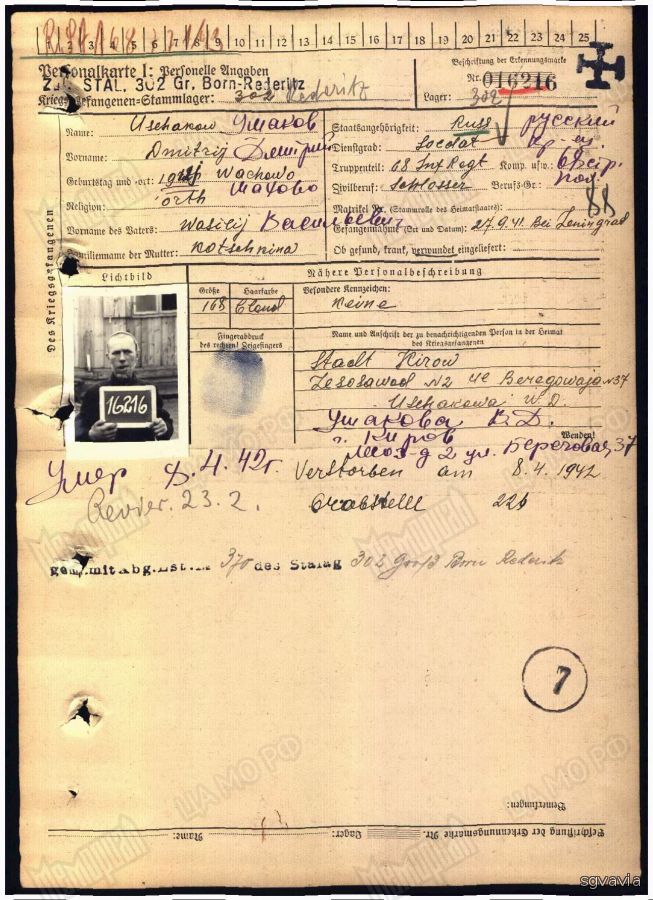 1 2 3 4 5 6 7 8 9 10 11 12 13 14 15 16 17 18 19 20 21 22 23 24 25
Personalkarte I: Personelle Angaben
STAL. 302 Gr. Born-Rederitz
Kriegsgefangenen-Stammlager: 302 Rederitz
Beschriftung der Erkennungsmarke
Nr. 016216
Lager: 302
Des Kriegsgefangenen
Name: Uschakow Ушаков
Vorname: Dmitrij Дмитрий
Geburtstag und -ort: Wachowo
Религион: orth
Vorname des Vaters: Wasilij Васильевич
Familienname der Mutter: Kotschkina
Staatsangehörigkeit: Russ русский
Dienstgrad: Soldat
Truppenteil: 68 Inf Regt Komp. usw.:
Zivilberuf: Schlosser Berufs-Gr.:
88
Matrikel Nr. (Stammrolle des Heimatstaates)
Gefangennahme (Ort und Datum): 27.9.41. Bei Leningrad
Ob gesund, krank, verwundet eingeliefert:
Lichtbild
Nähere Personalbeschreibung
Größe Haarfarbe Besondere Kennzeichen:
168 Blond Keine
Fingerabdruck des rechten Zeigefingers
Name und Anschrift der zu benachrichtigenden Person in der Heimat des Kriegsgefangenen
16216
Stadt Kirow
Lesosawod N2 Beregowaja N37
Uschakowa W. D.
Ушакова В. Д.
г. Киров
2 ул. Береговая, 37
Wenden!
Умер 8.4.42г. Verstorben am 8.4.1942
Revier. 23. 2. Grabstelle 226
370 des Stalag 302 Groß Born Rederitz
7
Bemerkungen:
Beschriftung der Erkennungsmarke Nr. Lager: Name:
ЦА МО РФ
sgvavia